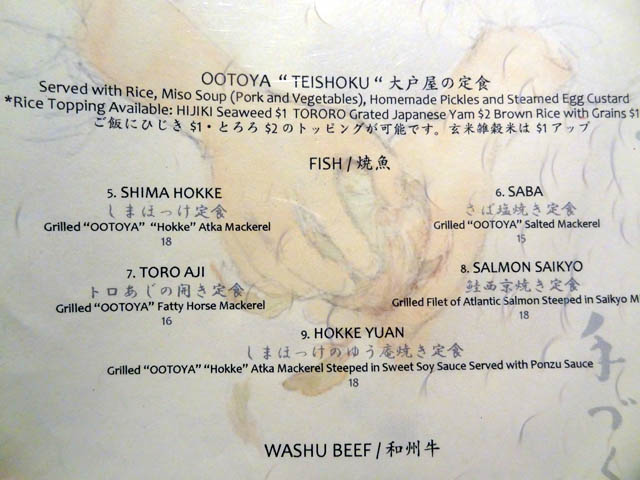 OOTOYA “ TEISHOKU “ 大戸屋の定食
Served with Rice, Miso Soup (Pork and Vegetables), Homemade Pickles and Steamed Egg Custard
*Rice Topping Available: HIJIKI Seaweed $1 TORORO Grated Japanese Yam $2 Brown Rice with Grains $1
ご飯にひじき $1・とろろ $2のトッピングが可能です。玄米雑穀米は $1アップ
FISH / 焼魚
5. SHIMA HOKKE
しまほっけ定食
Grilled “OOTOYA” “Hokke” Atka Mackerel
18
6. SABA
さば塩焼き定食
Grilled “OOTOYA” Salted Mackerel
15
7. TORO AJI
トロあじの開き定食
Grilled “OOTOYA” Fatty Horse Mackerel
16
8. SALMON SAIKYO
鮭西京焼き定食
Grilled Filet of Atlantic Salmon Steeped in Saikyo M
18
9. HOKKE YUAN
しまほっけのゆう庵焼き定食
Grilled “OOTOYA” “Hokke” Atka Mackerel Steeped in Sweet Soy Sauce Served with Ponzu Sauce
18
WASHU BEEF / 和州牛
手づく